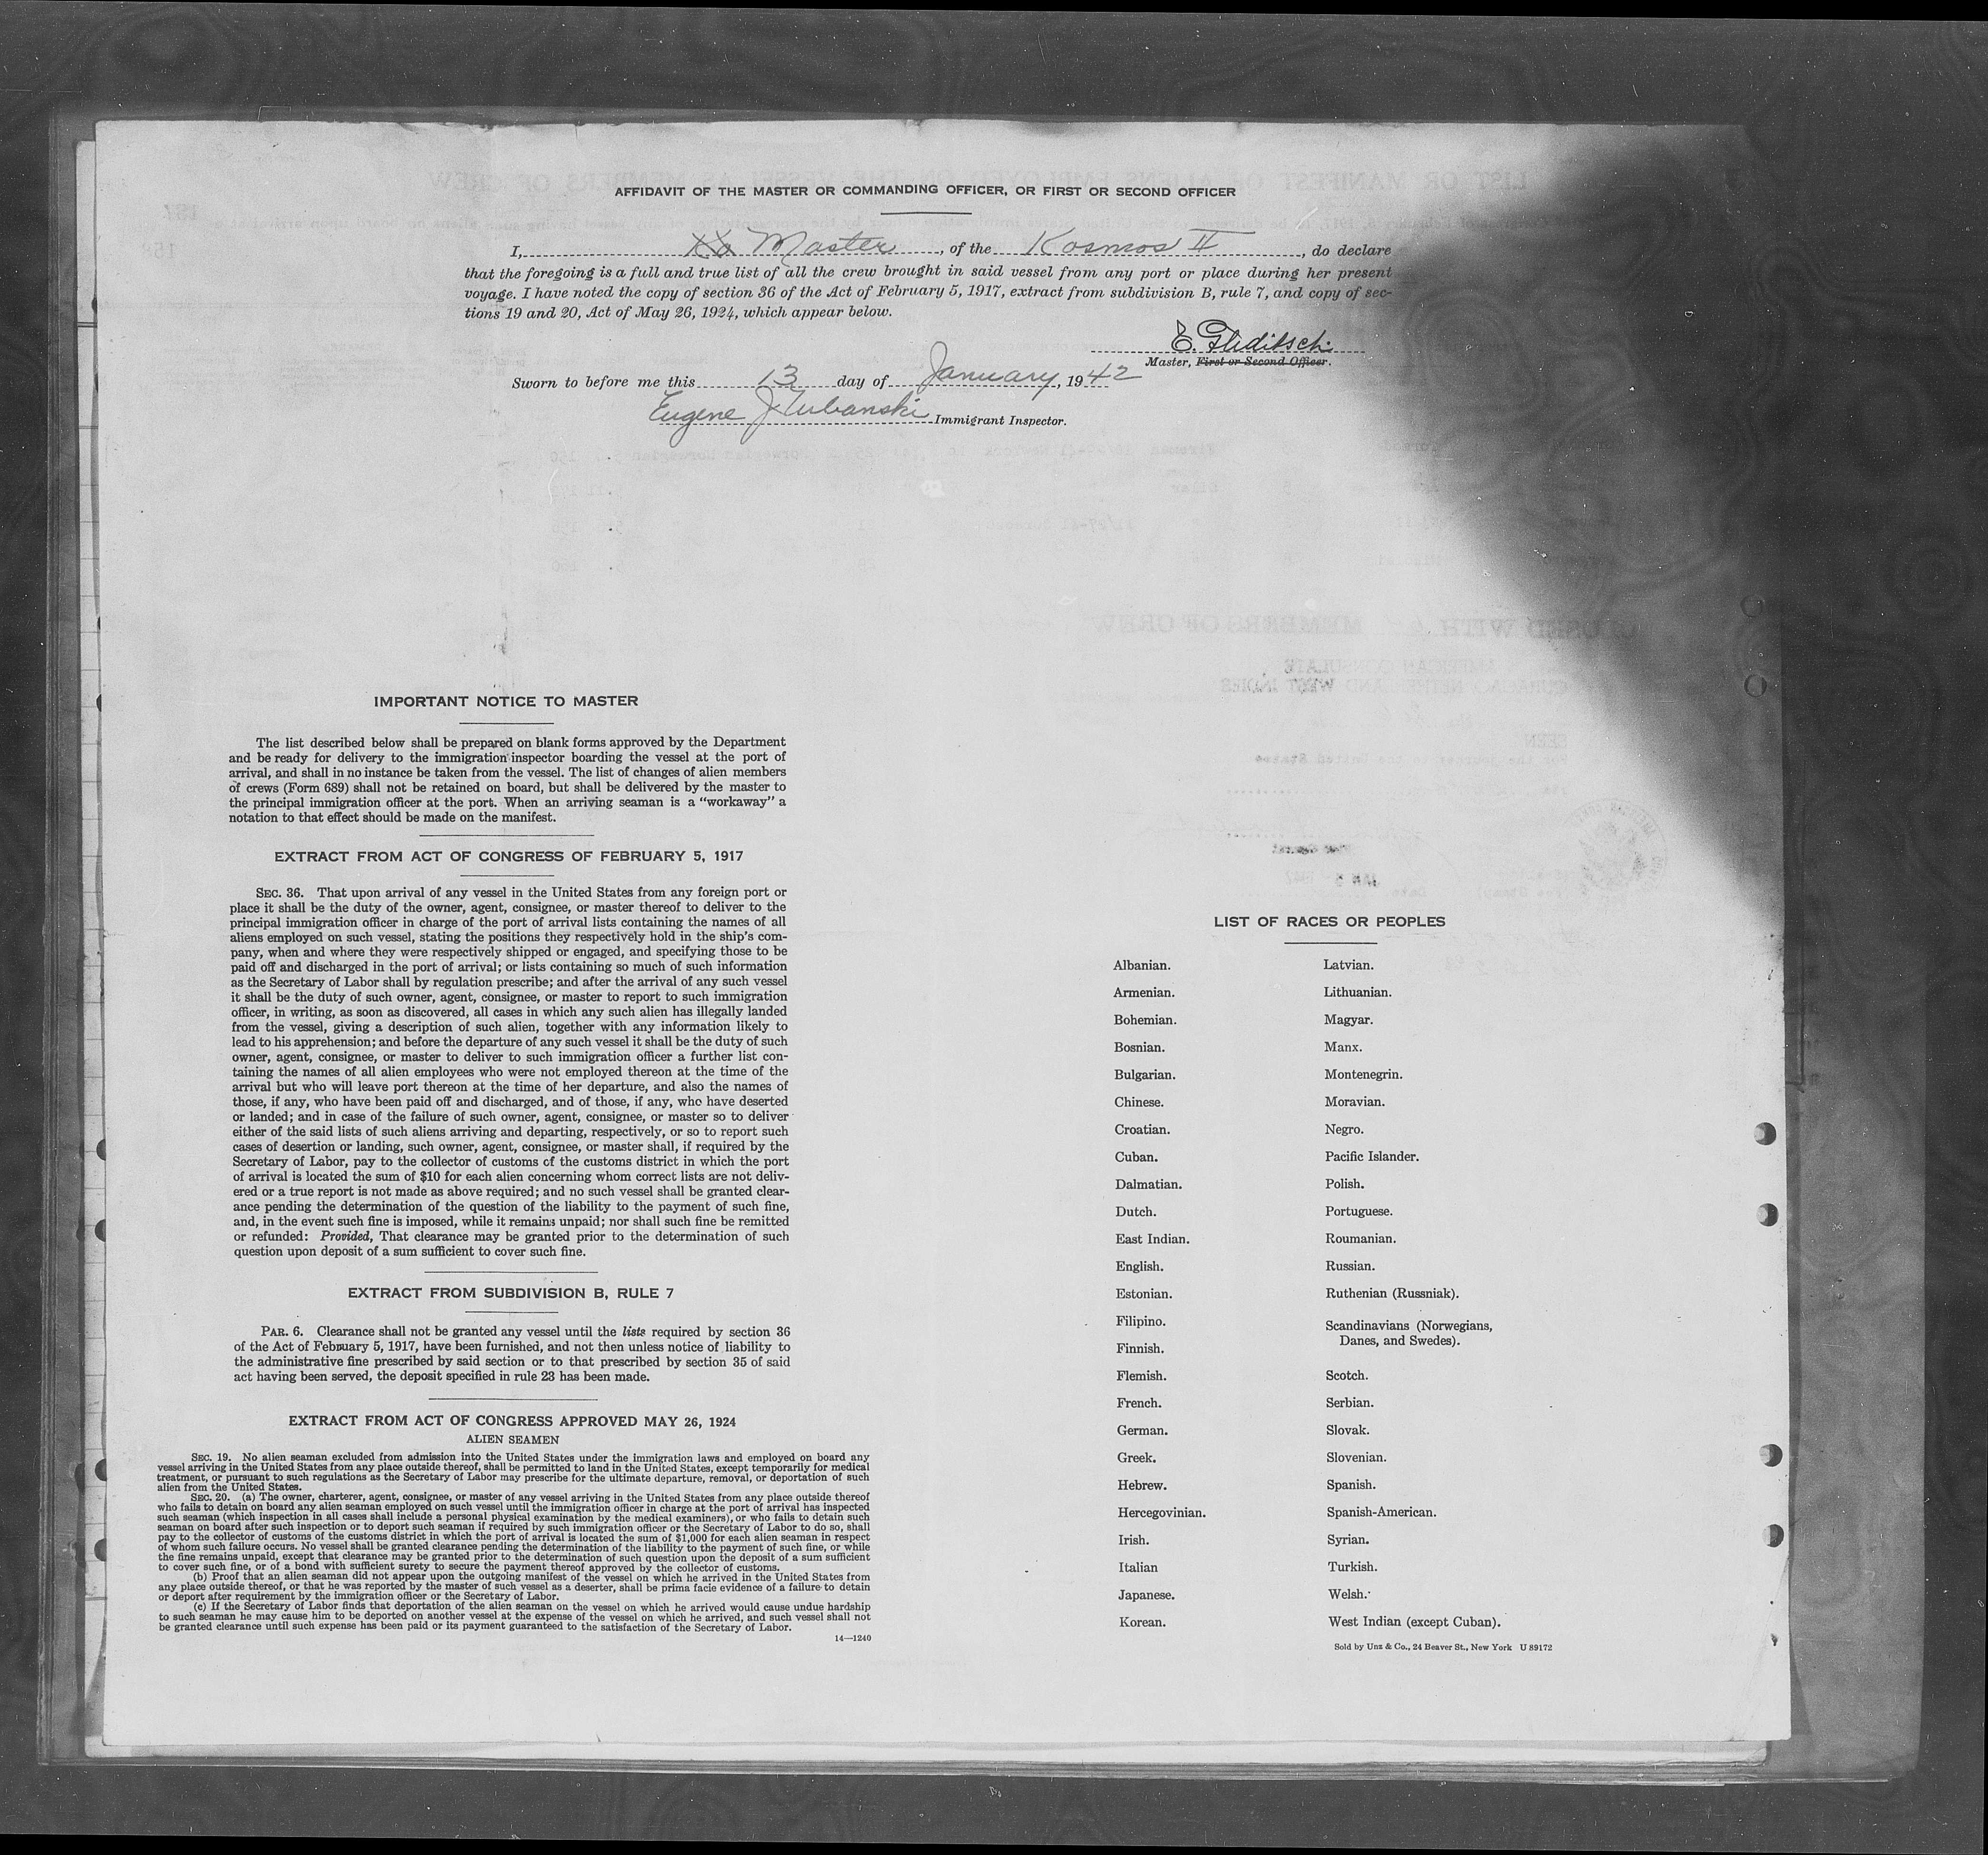 AFFIDAVIT OF THE MASTER OR COMMANDING OFFICER, OR FIRST OR SECOND OFFICER
I, Master, of the Kosmos II, do declare
that the foregoing is a full and true list of all the crew brought in said vessel from any port or place during her present
voyage. I have noted the copy of section 36 of the Act of February 5, 1917, extract from subdivision B, rule 7, and copy of sec-
tions 19 and 20, Act of May 26, 1924, which appear below.
E. Gleditsch
Master, First or Second Officer.
Sworn to before me this 13 day of January, 1942
Eugene Immigrant Inspector.
IMPORTANT NOTICE TO MASTER
The list described below shall be prepared on blank forms approved by the Department
and be ready for delivery to the immigration inspector boarding the vessel at the port of
arrival, and shall in no instance be taken from the vessel. The list of changes of alien members
of crews (Form 689) shall not be retained on board, but shall be delivered by the master to
the principal immigration officer at the port. When an arriving seaman is a "workaway" a
notation to that effect should be made on the manifest.
EXTRACT FROM ACT OF CONGRESS OF FEBRUARY 5, 1917
SEC. 36. That upon arrival of any vessel in the United States from any foreign port or
place it shall be the duty of the owner, agent, consignee, or master thereof to deliver to the
principal immigration officer in charge of the port of arrival lists containing the names of all
aliens employed on such vessel, stating the positions they respectively hold in the ship's com-
pany, when and where they were respectively shipped or engaged, and specifying those to be
paid off and discharged in the port of arrival; or lists containing so much of such information
as the Secretary of Labor shall by regulation prescribe; and after the arrival of any such vessel
it shall be the duty of such owner, agent, consignee, or master to report to such immigration
officer, in writing, as soon as discovered, all cases in which any such alien has illegally landed
from the vessel, giving a description of such alien, together with any information likely to
lead to his apprehension; and before the departure of any such vessel it shall be the duty of such
owner, agent, consignee, or master to deliver to such immigration officer a further list con-
taining the names of all alien employees who were not employed thereon at the time of the
arrival but who will leave port thereon at the time of her departure, and also the names of
those, if any, who have been paid off and discharged, and of those, if any, who have deserted
or landed; and in case of the failure of such owner, agent, consignee, or master so to deliver
either of the said lists of such aliens arriving and departing, respectively, or so to report such
cases of desertion or landing, such owner, agent, consignee, or master shall, if required by the
Secretary of Labor, pay to the collector of customs of the customs district in which the port
of arrival is located the sum of $10 for each alien concerning whom correct lists are not deliv-
ered or a true report is not made as above required; and no such vessel shall be granted clear-
ance pending the determination of the question of the liability to the payment of such fine,
and, in the event such fine is imposed, while it remains unpaid; nor shall such fine be remitted
or refunded: Provided, That clearance may be granted prior to the determination of such
question upon deposit of a sum sufficient to cover such fine.
EXTRACT FROM SUBDIVISION B, RULE 7
PAR. 6. Clearance shall not be granted any vessel until the lists required by section 36
of the Act of February 5, 1917, have been furnished, and not then unless notice of liability to
the administrative fine prescribed by said section or to that prescribed by section 35 of said
act having been served, the deposit specified in rule 23 has been made.
EXTRACT FROM ACT OF CONGRESS APPROVED MAY 26, 1924
ALIEN SEAMEN
SEC. 19. No alien seaman excluded from admission into the United States under the immigration laws and employed on board any
vessel arriving in the United States from any place outside thereof, shall be permitted to land in the United States, except temporarily for medical
treatment, or pursuant to such regulations as the Secretary of Labor may prescribe for the ultimate departure, removal, or deportation of such
alien from the United States.
SEC. 20. (a) The owner, charterer, agent, consignee, or master of any vessel arriving in the United States from any place outside thereof
who fails to detain on board any alien seaman employed on such vessel until the immigration officer in charge at the port of arrival has inspected
such seaman (which inspection in all cases shall include a personal physical examination by the medical examiners), or who fails to detain such
seaman on board after such inspection or to deport such seaman if required by such immigration officer or the Secretary of Labor to do so, shall
pay to the collector of customs of the customs district in which the port of arrival is located the sum of $1,000 for each alien seaman in respect
of whom such failure occurs. No vessel shall be granted clearance pending the determination of the liability to the payment of such fine, or while
the fine remains unpaid, except that clearance may be granted prior to the determination of such question upon the deposit of a sum sufficient
to cover such fine, or of a bond with sufficient surety to secure the payment thereof approved by the collector of customs.
(b) Proof that an alien seaman did not appear upon the outgoing manifest of the vessel on which he arrived in the United States from
any place outside thereof, or that he was reported by the master of such vessel as a deserter, shall be prima facie evidence of a failure to detain
or deport after requirement by the immigration officer or the Secretary of Labor.
(c) If the Secretary of Labor finds that deportation of the alien seaman on the vessel on which he arrived would cause undue hardship
to such seaman he may cause him to be deported on another vessel at the expense of the vessel on which he arrived, and such vessel shall not
be granted clearance until such expense has been paid or its payment guaranteed to the satisfaction of the Secretary of Labor.
14—1240
LIST OF RACES OR PEOPLES
Albanian.
Armenian.
Bohemian.
Bosnian.
Bulgarian.
Chinese.
Croatian.
Cuban.
Dalmatian.
Dutch.
East Indian.
English.
Estonian.
Filipino.
Finnish.
Flemish.
French.
German.
Greek.
Hebrew.
Hercegovinian.
Irish.
Italian
Japanese.
Korean.
Latvian.
Lithuanian.
Magyar.
Manx.
Montenegrin.
Moravian.
Negro.
Pacific Islander.
Polish.
Portuguese.
Roumanian.
Russian.
Ruthenian (Russniak).
Scandinavians (Norwegians,
Danes, and Swedes).
Scotch.
Serbian.
Slovak.
Slovenian.
Spanish.
Spanish-American.
Syrian.
Turkish.
Welsh.
West Indian (except Cuban).
Sold by Unz & Co., 24 Beaver St., New York U 89172